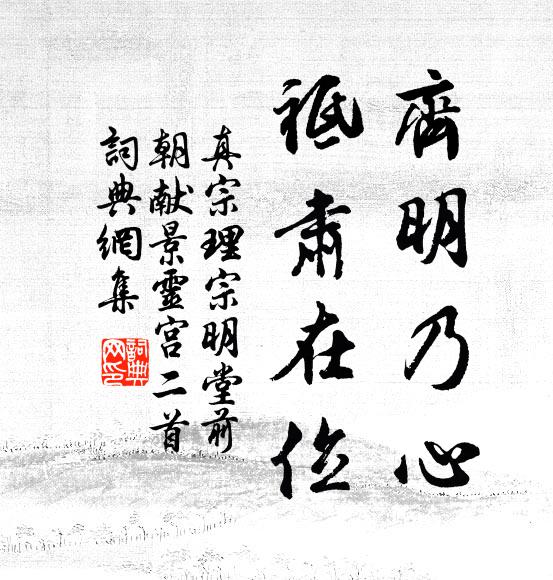 齊明乃心
祗肅在位
真宗理宗明堂前
朝献景靈宮二首
詞典網集
詞典
网印